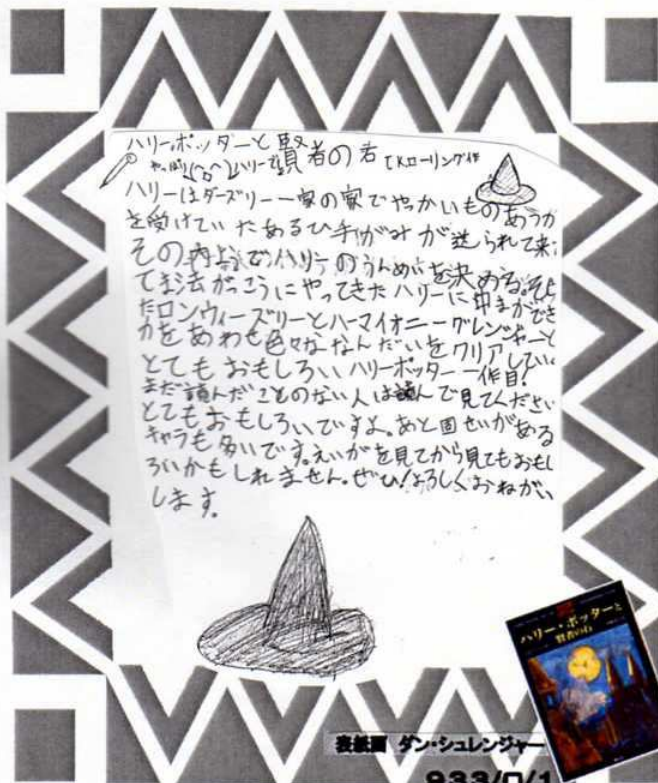 ハリーポッターと賢者の石
やっぱり ハリーで J.Kローリング作
ハリーはダーズリー一家の家でやっかいものあつか
を受けていたあるひ手がみが送られて来
その内ようでハリーのうんめいを決める。そし
てまほうがっこうにやってきたハリーに中まができ
たロンウィーズリーとハーマイオニーグレンジャーと
力をあわせ色々ななんだいをクリアしてい
とてもおもしろいハリーポッター一作目!
まだ読んだことのない人は読んで見てください
とてもおもしろいですよ。あと固せいがある
キャラも多いです。えいがを見てから見てもおもし
ろいかもしれません。ぜひ!よろしくおねがい
します。
ハリー・ポッターと
賢者の石
表紙画 ダン・シュレシンジャー
933/ロ/1